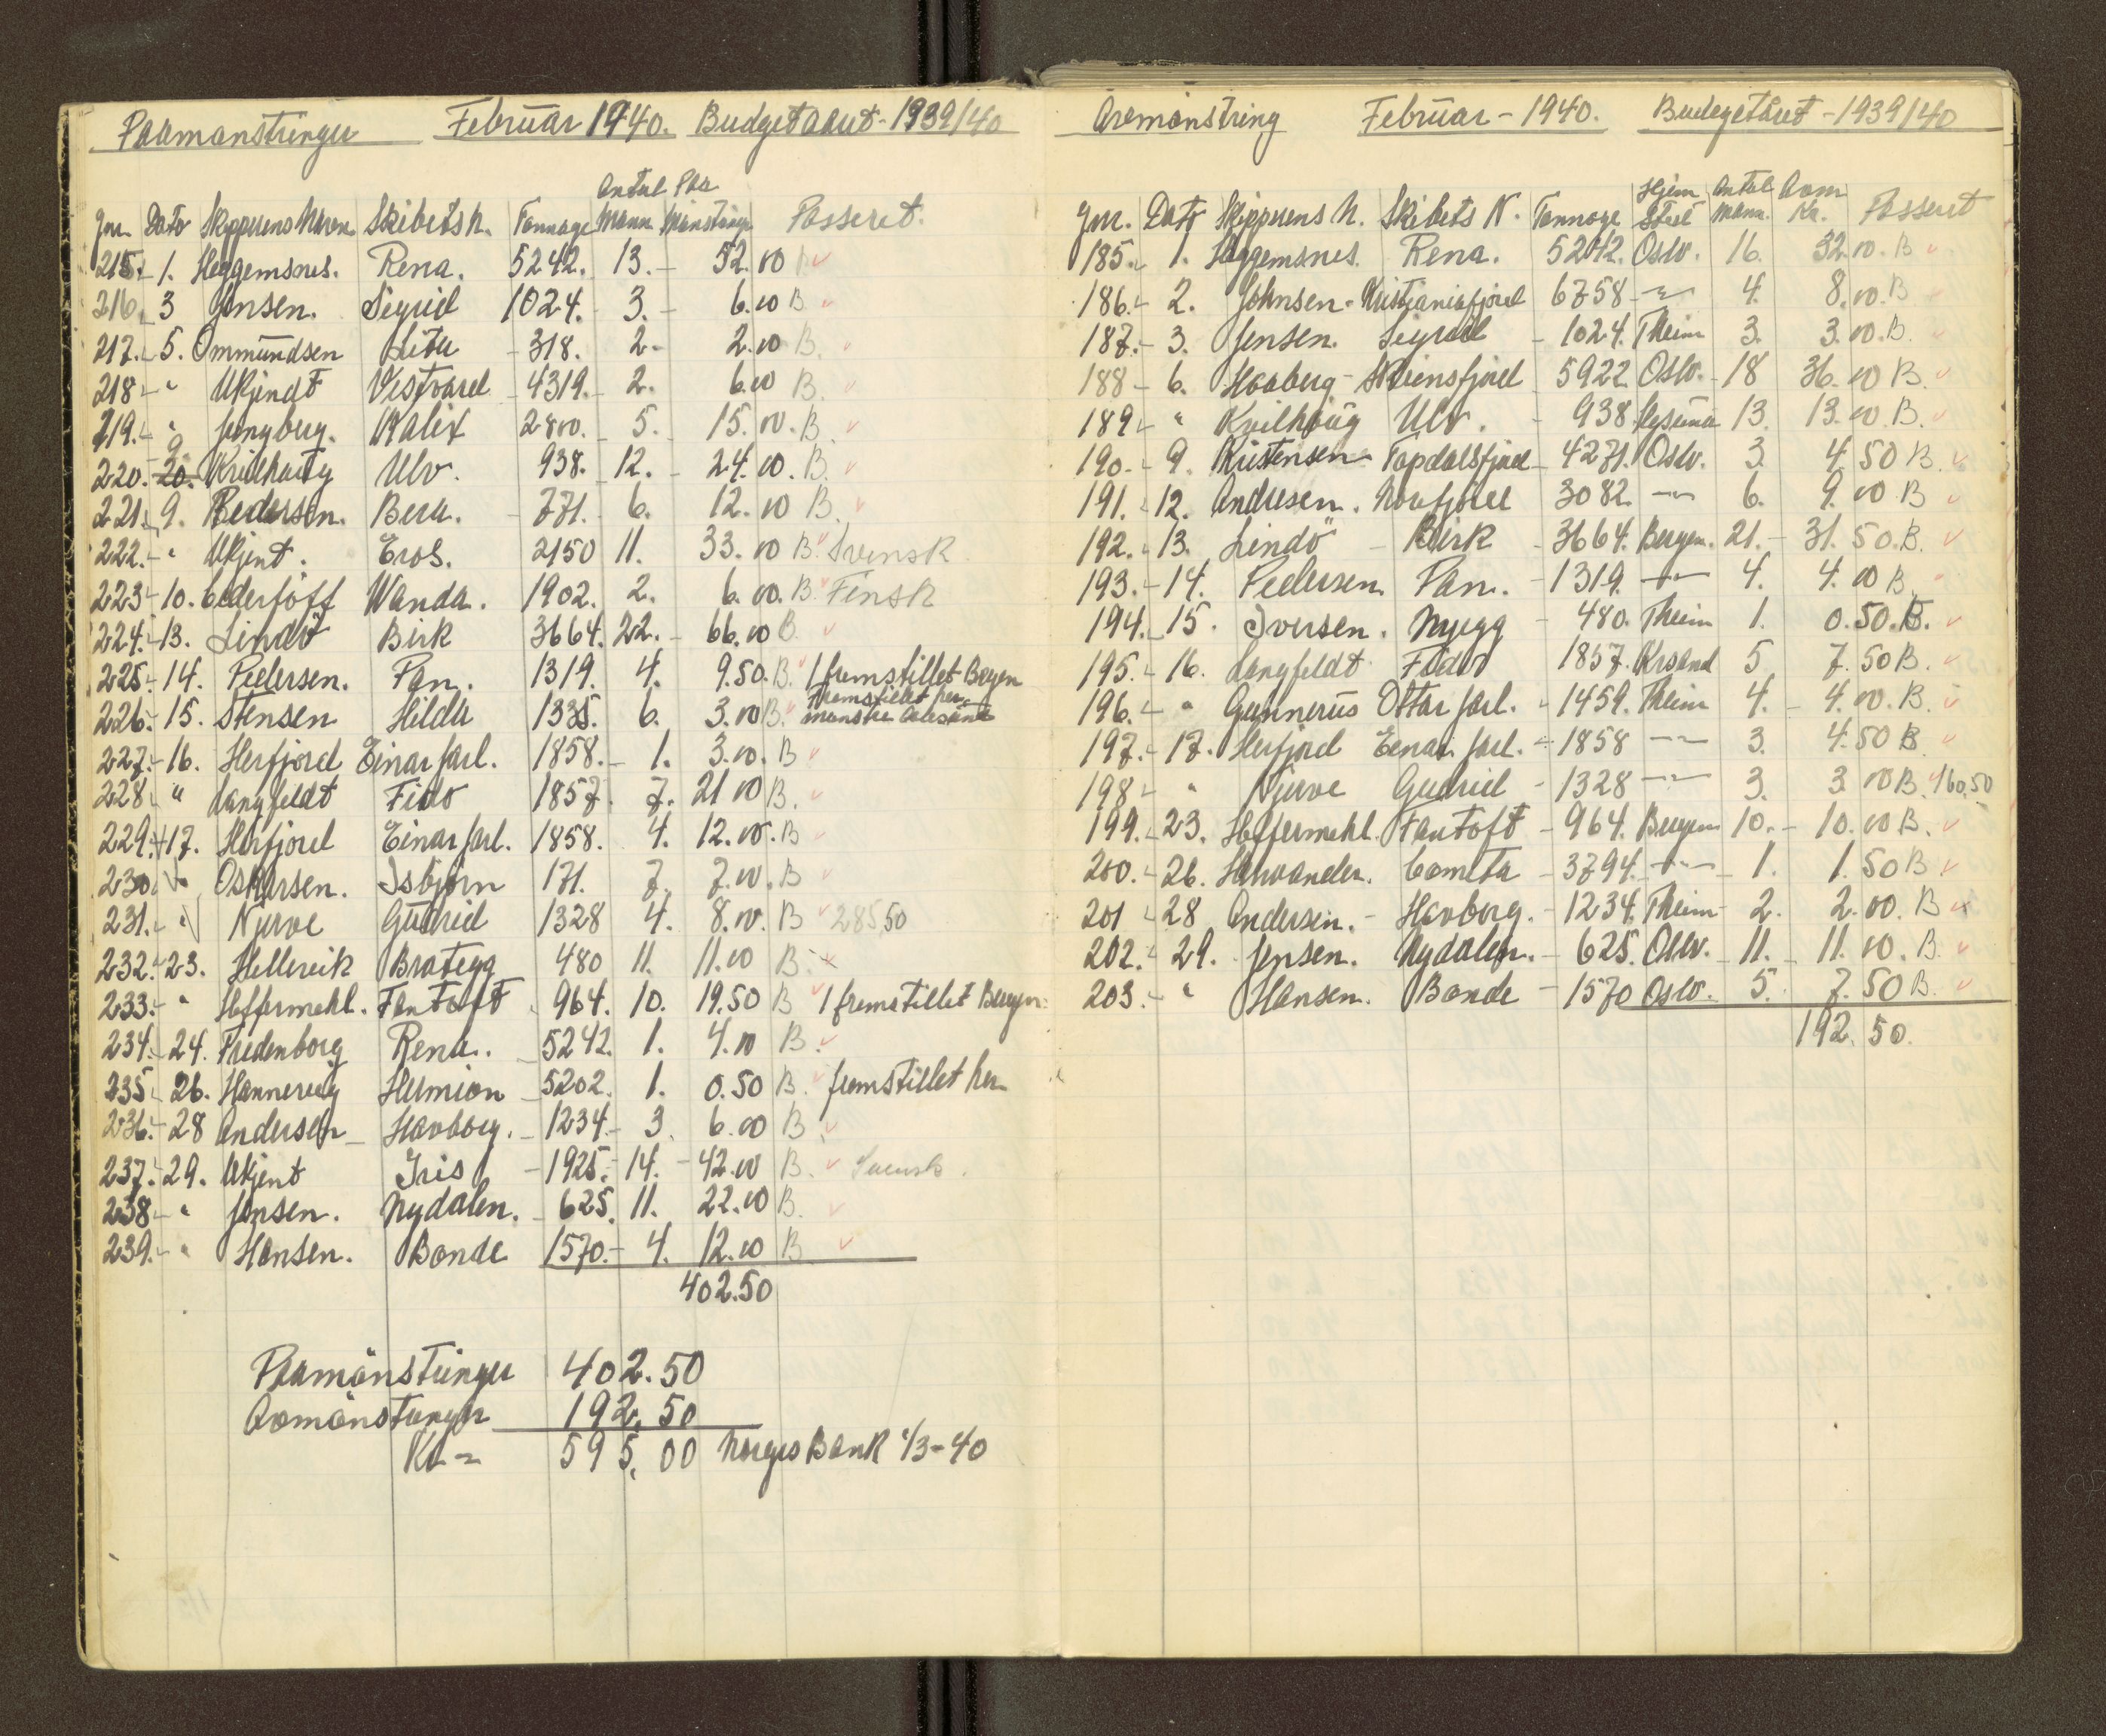 Paamønstringer Februar 1940. Budgetaaret - 1939/40
Antal Paa
Jnr. Dato Skipperens Navn Skibets N. Tonnage Mann Mønstring Passeret.
215. 1. Heggemsnes. Rena. 5242. 13. 52.00
216. 3 Jensen. Sigrid 1024. 3. 6.00 B
217. 5. Ommundsen Sita 318. 2. 2.00 B.
218 " Ukjendt Vestvard 4319. 2. 6.00 B.
219. " Ljungberg. Kalix 2800. 5. 15.00. B
9.
220. 20. Kvilhaug Ulv. 938. 12. 24.00. B.
221. 9. Pedersen. Bera. 771. 6. 12.00 B.
222. " Ukjent. Eros. 2150 11. 33.00 B. Svensk
223 10. Cederlöff Wanda. 1902. 2. 6.00. B. Finsk
224. 13. Lindö Birk 3664. 22. 66.00 B.
225. 14. Pedersen. Pan. 1319. 4. 9.50. B. 1 fremstillet Bergen
226. 15. Stensen Hilda 1335. 6. 3.00 B. Fremstillet her mønstre Aalesund
227. 16. Herfjord Einar Jarl. 1858. 1. 3.00. B
228 " Langfeldt Fido 1857. 7. 21 00 B.
229. 17. Herfjord Einar Jarl. 1858. 4. 12.00. B
230. " Oskarsen. Isbjørn 171. 7. 7.00. B
231. " Njerve Gudrid 1328 4. 8.00. B 285,50
232. 23. Hellevik Brategg 480 11. 11.00 B.
233. " Heffermehl. Fantoft 964. 10. 19.50 B 1 fremstillet Bergen.
234. 24. Fredenborg Rena. 5242. 1. 4.00 B.
235 26. Hannevig Hermion 5202. 1. 0.50 B. fremstillet her
236. 28 Andersen Havborg. 1234. 3. 6.00 B.
237. 29. Ukjent Iris 1925. 14. 42.00 B. Svensk.
238 " Jensen. Nydalen. 625. 11. 22.00 B.
239. " Hansen. Bonde 1570. 4. 12.00 B
402.50
Paamønstringer 402.50
Avmønstringer 192.50
Kr = 595,00 Norges Bank 1/3-40
Avmønstring Februar - 1940. Budgetåret - 1939/40
Hjem Antal Avm
Jnr. Dato Skipperens N. Skibets N. Tonnage Sted Mann. Kr. Passeret
185. 1. Heggemsnes. Rena. 5242. Oslo. 16. 32.00. B
186. 2. Johnsen. Kristianiafjord 6758 -"- 4. 8.00. B
187. 3. Jensen. Sigrid 1024. Theim 3. 3.00. B.
188 6. Haaberg Skiensfjord 5922 Oslo. 18 36.00 B.
189 " Kvilhaug Ulv. 938 Hgsund 13. 13.00 B.
190. 9. Kristensen Topdalsfjord 4271. Oslo. 3. 4.50 B.
191. 12. Andresen. Norfjord 3082 -"- 6. 9.00 B
192. 13. Lindö Birk 3664. Bergen. 21. 31.50. B.
193. 14. Pedersen Pan. 1319. -"- 4. 4.00 B.
194. 15. Iversen. Nyegg 480. Theim 1. 0.50. B.
195. 16. Langfeldt Fido 1857. Krsand 5 7.50 B.
196. " Gunnerus Ottar Jarl. 1459. Theim 4. 4.00. B.
197. 17. Herfjord Einar Jarl. 1858 -"- 3. 4.50 B
198 " Njerve Gudrid 1328 -"- 3. 3.00 B. 160,50
199. 23. Heffermehl. Fantoft 964. Bergen 10. 10.00 B.
200. 26. Halvander. Cometa 3794. -"- 1. 1.50 B
201 28 Andersen. Havborg. 1234. Theim 2. 2.00. B
202. 29. Jensen. Nydalen. 625. Oslo. 11. 11.00. B.
203. " Hansen. Bonde 1570 Oslo. 5. 7.50 B.
192.50.